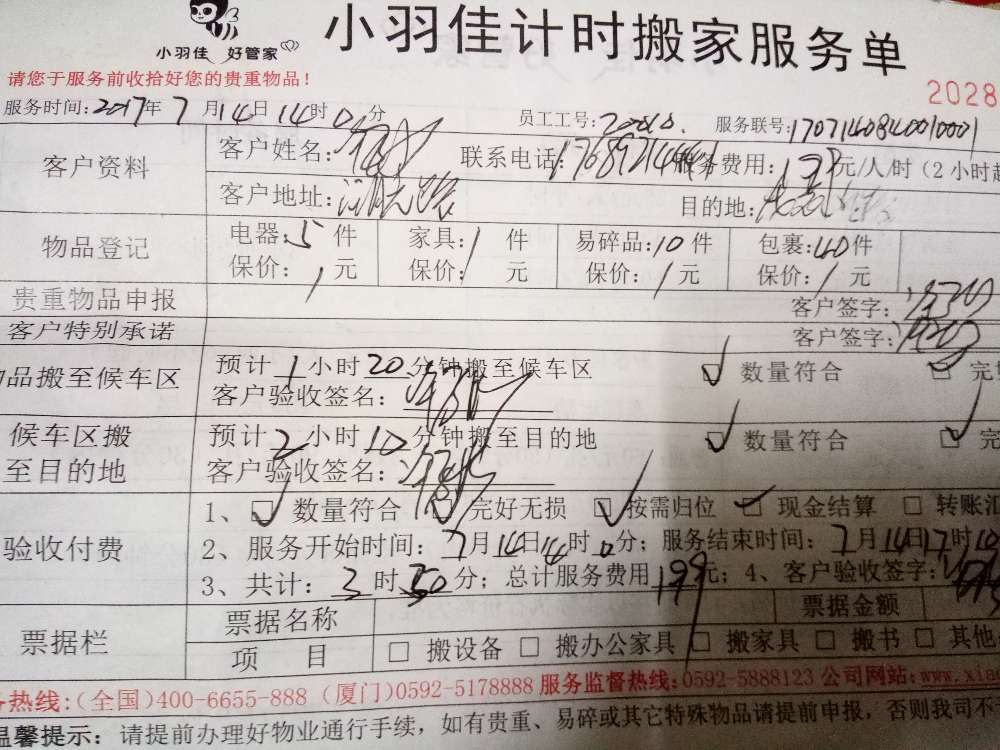 小羽佳 好管家
小羽佳计时搬家服务单
请您于服务前收拾好您的贵重物品！
2028
服务时间：2017年 7 月14日 14时 0 分 员工工号： 服务联号：1707140840010001
客户资料 客户姓名： 联系电话： 服务费用： 元/人/时（2小时起
客户地址： 目的地：
物品登记 电器：5 件 家具：1 件 易碎品：10 件 包裹：40件
保价：/ 元 保价：/ 元 保价：/ 元 保价：/ 元
贵重物品申报 客户签字：
客户特别承诺 客户签字：
物品搬至候车区 预计 1 小时 20 分钟搬至候车区 ☑ 数量符合 完好
客户验收签名：
候车区搬 预计 2 小时 10 分钟搬至目的地 ☑ 数量符合 ☑ 完
至目的地 客户验收签名：
验收付费 1、☑ 数量符合 ☑ 完好无损 ☑ 按需归位 ☑ 现金结算 □ 转账汇
2、服务开始时间：7月14日14时 0分；服务结束时间：7月14日17时10
3、共计：3 时 分；总计服务费用 199 元；4、客户验收签字：
票据栏 票据名称 票据金额
项 目 □ 搬设备 □ 搬办公家具 □ 搬家具 □ 搬书 □ 其他
务热线：（全国）400-6655-888（厦门）0592-5178888 服务监督热线：0592-5888123 公司网站：www.xia
温馨提示：请提前办理好物业通行手续，如有贵重、易碎或其它特殊物品请提前申报，否则我司不